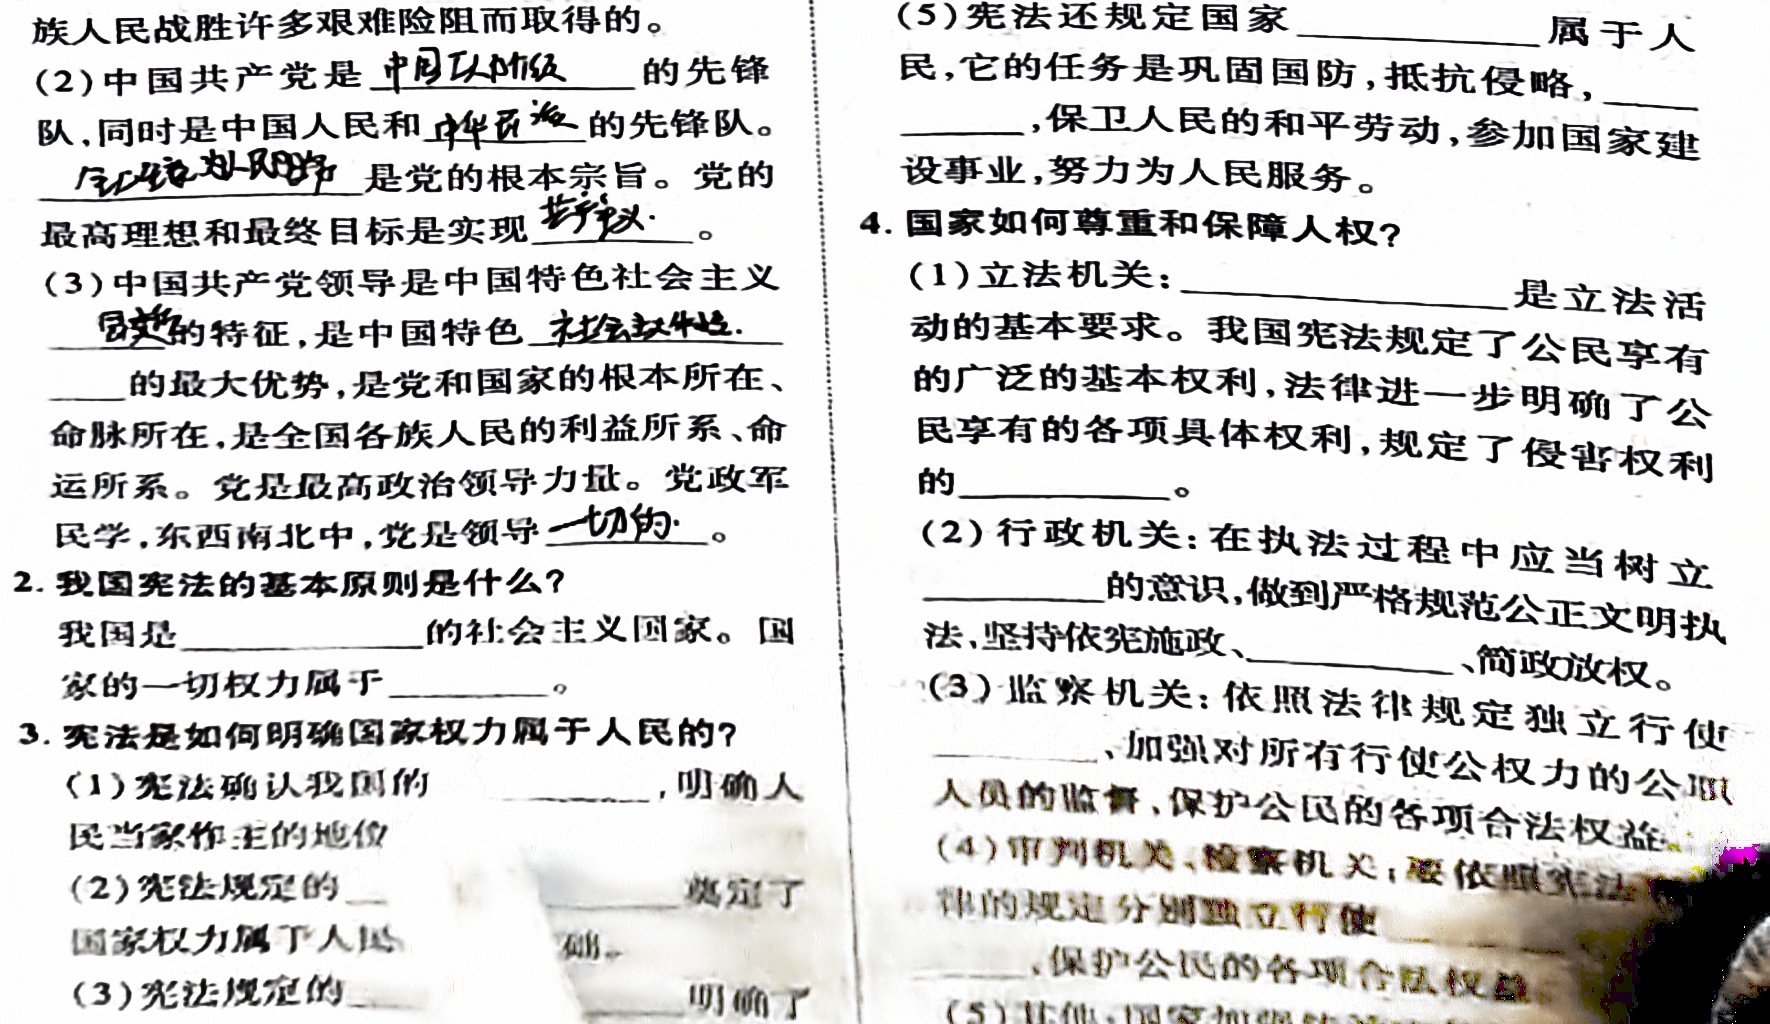 族人民战胜许多艰难险阻而取得的。
(2)中国共产党是中国工人阶级的先锋
队,同时是中国人民和中华民族的先锋队。
全心全意为人民服务是党的根本宗旨。党的
最高理想和最终目标是实现共产主义。
(3)中国共产党领导是中国特色社会主义
最本质的特征,是中国特色社会主义制度
____的最大优势,是党和国家的根本所在、
命脉所在,是全国各族人民的利益所系、命
运所系。党是最高政治领导力量。党政军
民学,东西南北中,党是领导一切的。
2.我国宪法的基本原则是什么?
我国是____的社会主义国家。国
家的一切权力属于____。
3.宪法是如何明确国家权力属于人民的?
(1)宪法确认我国的____,明确人
民当家作主的地位
(2)宪法规定的____奠定了
国家权力属于人民 础。
(3)宪法规定的____明确了
(5)宪法还规定国家____属于人
民,它的任务是巩固国防,抵抗侵略,____
____,保卫人民的和平劳动,参加国家建
设事业,努力为人民服务。
4.国家如何尊重和保障人权?
(1)立法机关:____是立法活
动的基本要求。我国宪法规定了公民享有
的广泛的基本权利,法律进一步明确了公
民享有的各项具体权利,规定了侵害权利
的____。
(2)行政机关:在执法过程中应当树立
____的意识,做到严格规范公正文明执
法,坚持依宪施政、____、简政放权。
(3)监察机关:依照法律规定独立行使
____、加强对所有行使公权力的公职
人员的监督,保护公民的各项合法权益。
(4)审判机关、检察机关:要依照宪法
律的规定分别独立行使____
____,保护公民的各项合法权益。
(5)其他:国家加强